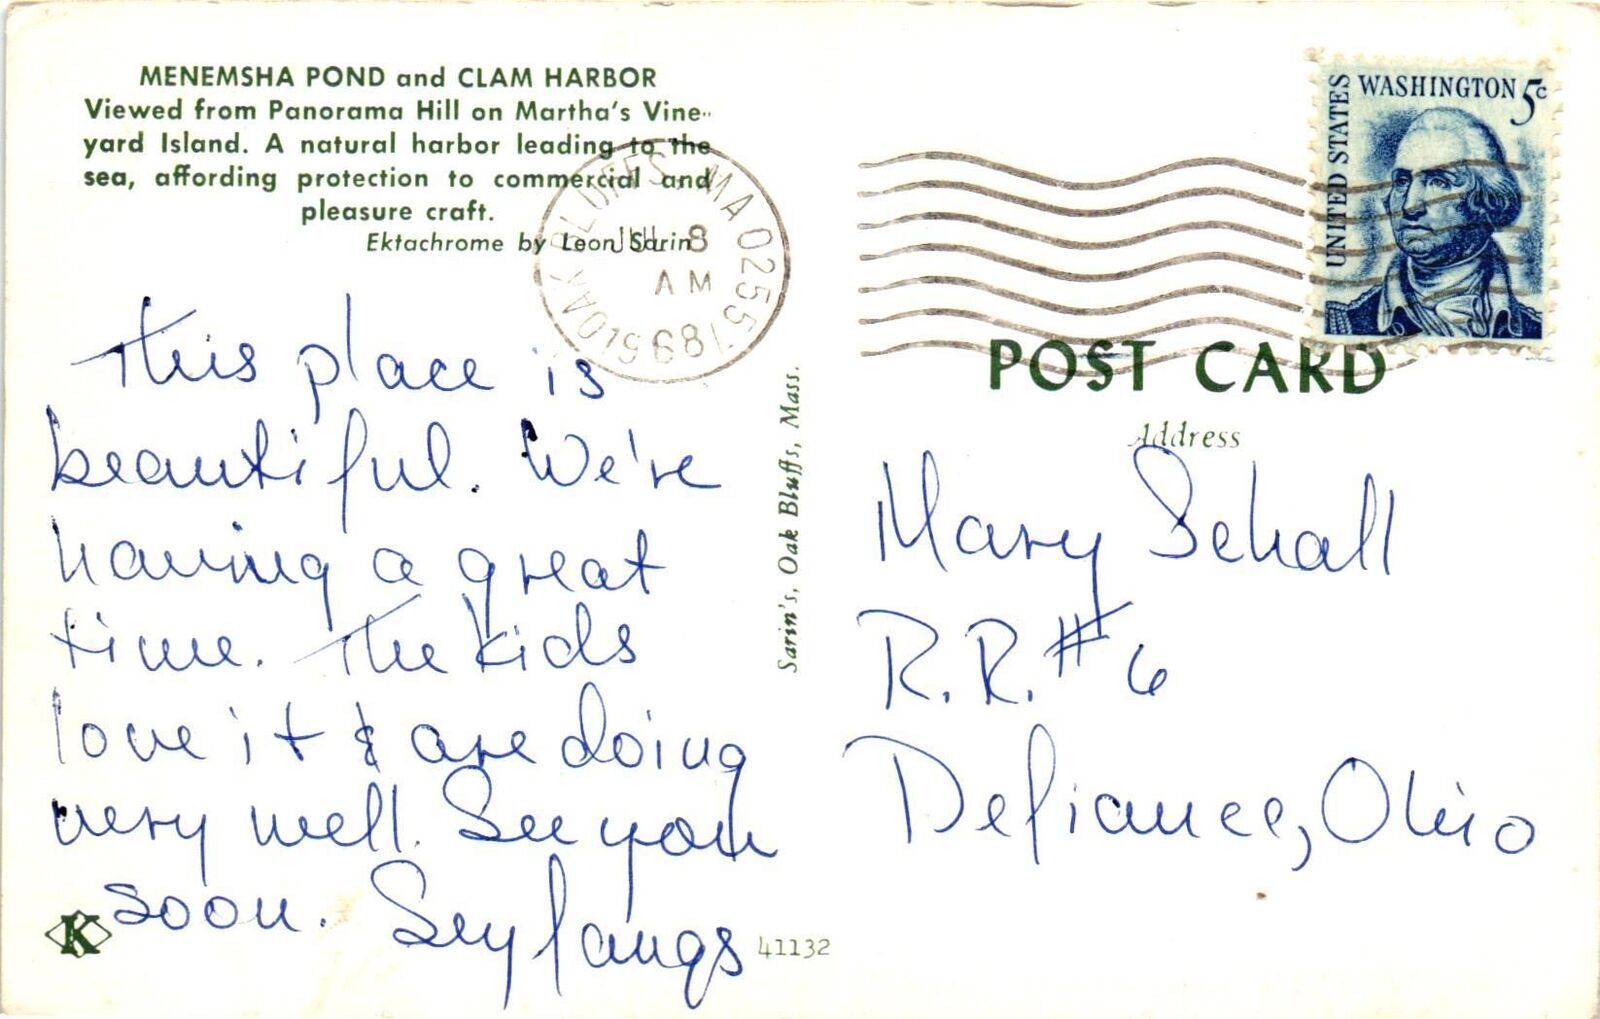 MENEMSHA POND and CLAM HARBOR
Viewed from Panorama Hill on Martha's Vine-
yard Island. A natural harbor leading to the
sea, affording protection to commercial and
pleasure craft.
Ektachrome by Leon Sarin
OAK BLUFFS, MA 02557
JUL 8
AM
1968
This place is
beautiful. We're
having a great
time. The kids
love it & are doing
very well. See you
soon. Seylangs
K
41132
Sarin's, Oak Bluffs, Mass.
UNITED STATES
WASHINGTON 5c
POST CARD
Address
Mary Schall
R.R. #6
Defiance, Ohio